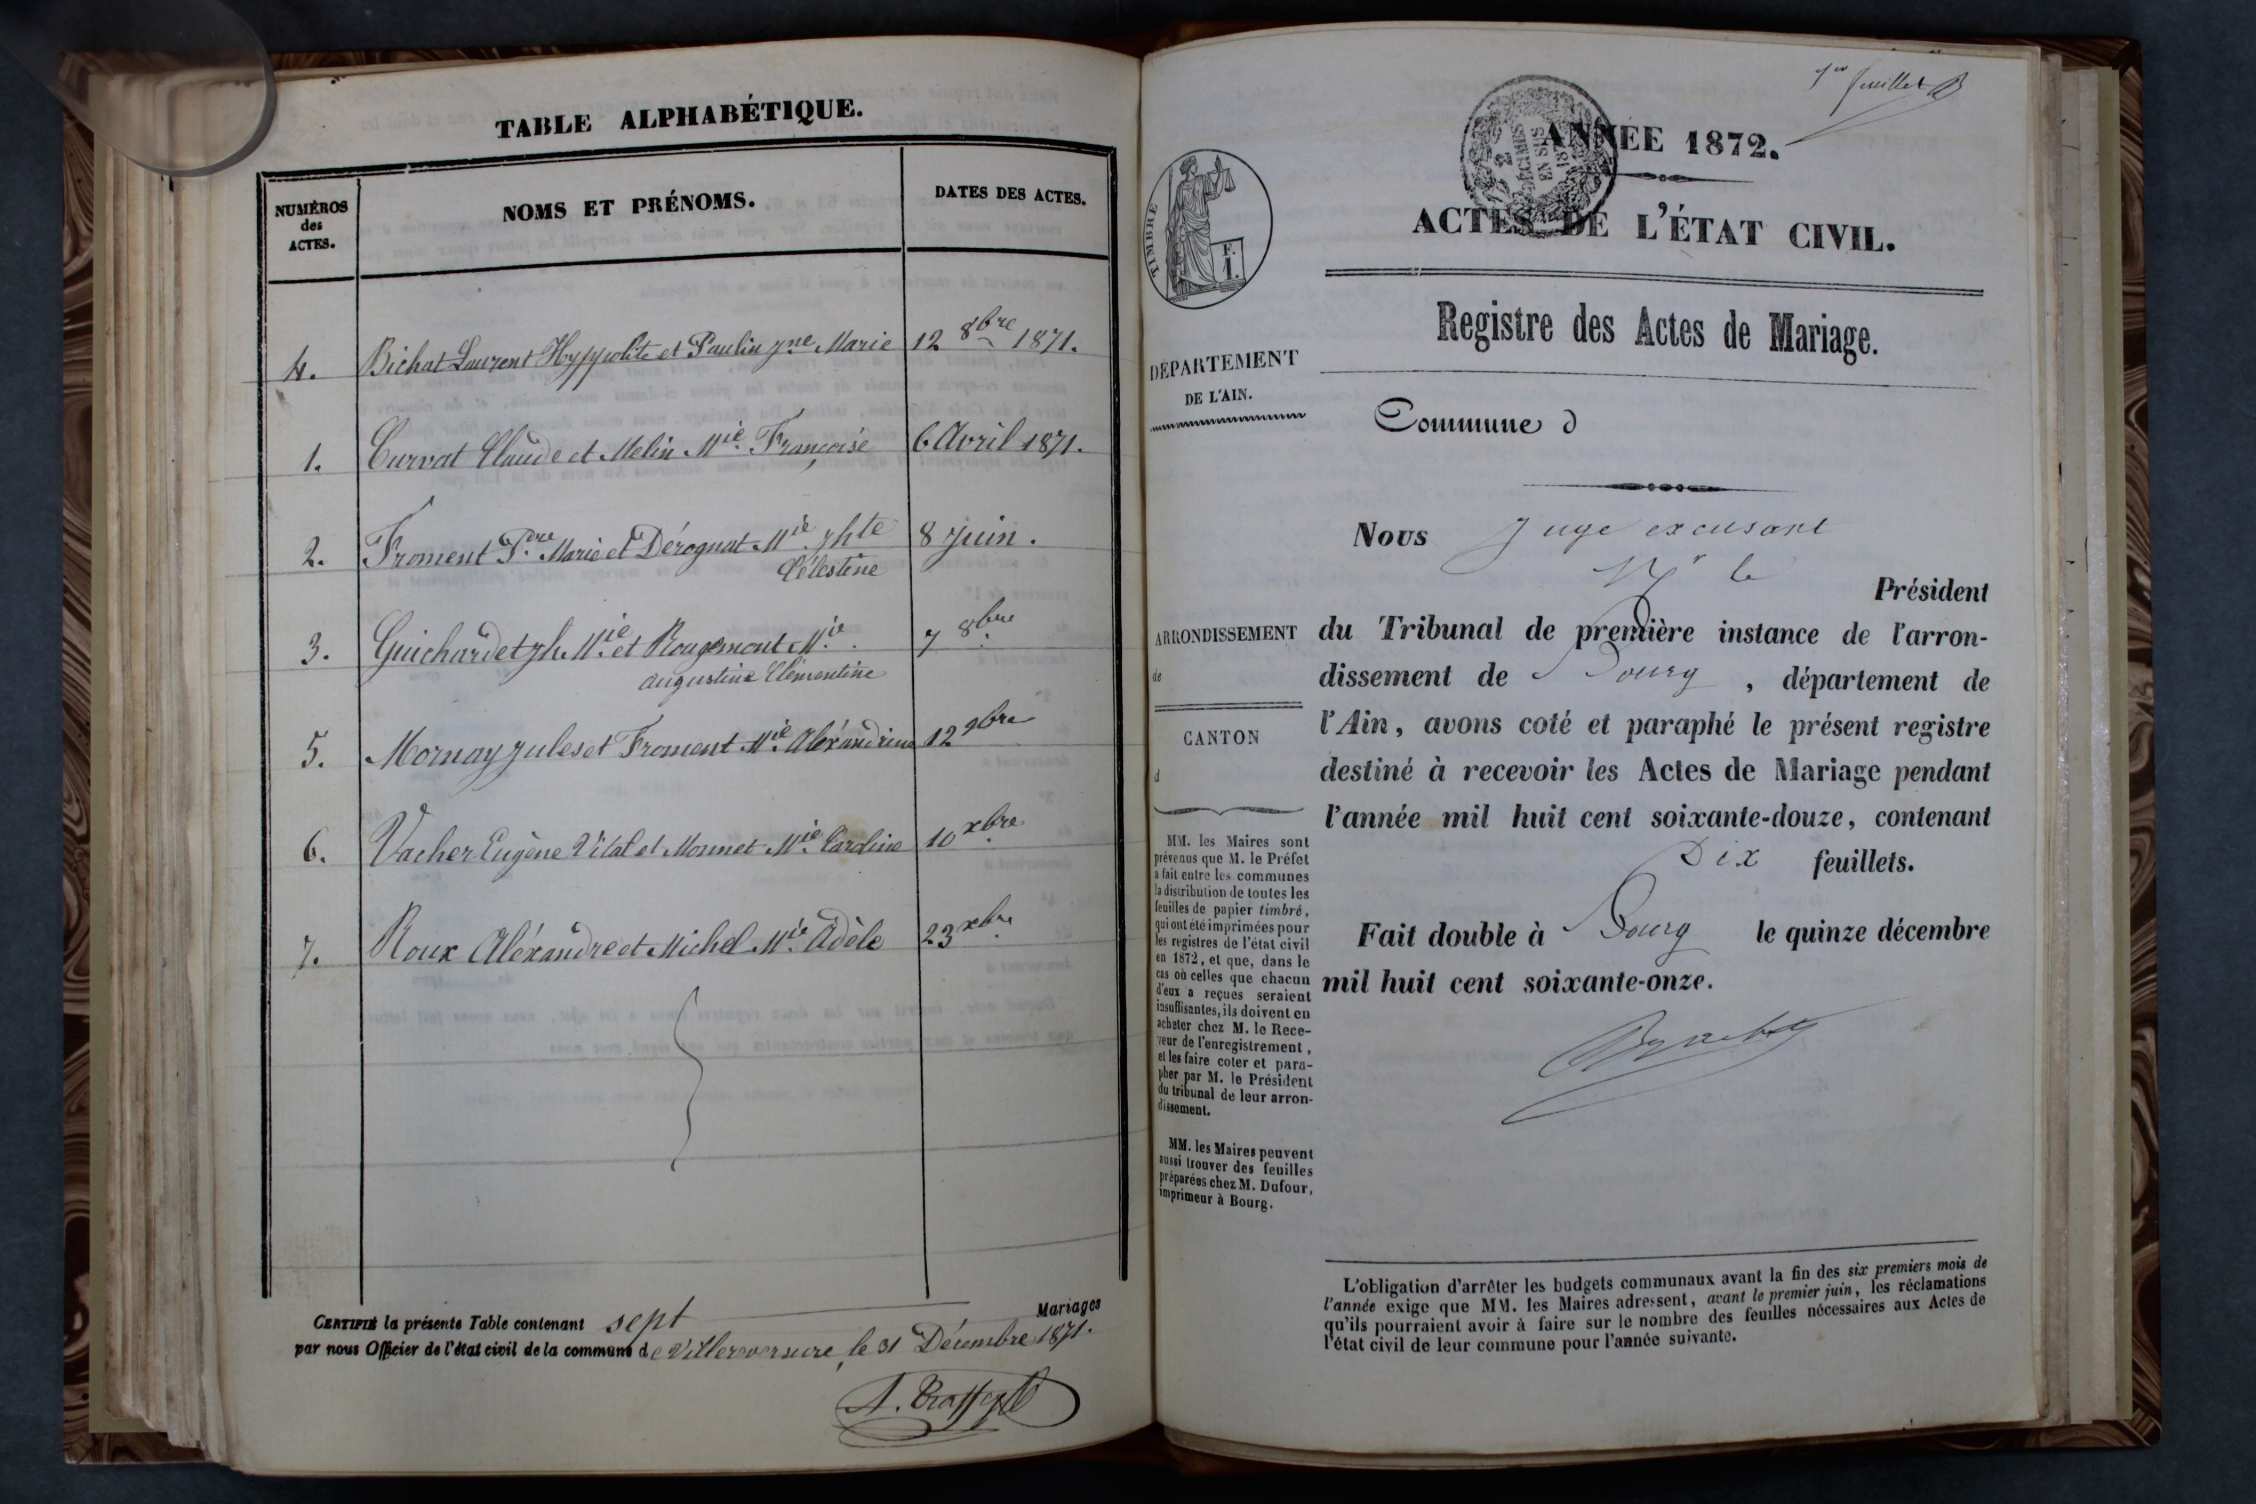 TABLE ALPHABÉTIQUE.
NUMÉROS des ACTES. NOMS ET PRÉNOMS. DATES DES ACTES.
4. Bichat Laurent Hyppolite et Paulin Jne Marie 12 8bre 1871.
1. Curvat Claude et Melin Mie Françoise 6 Avril 1871.
2. Froment Pdre Marie et Dérognat Mie Jhte 8 Juin.
Célestine
3. Guichardet Jh Mie et Rougemont Mie 7 8bre
augustine Clémentine
5. Mornay Jules et Froment Mie Aléxandrine 12 9bre
6. Vacher Eugène Vital et Monnet Mie Caroline 10 xbre
7. Roux Aléxandre et Michel Mie Adèle 23 xbre
CERTIFIÉ la présente Table contenant sept Mariages
par nous Officier de l'état civil de la commune de Villereversure, le 31 Décembre 1871.
1er feuillet
2 DÉCIMES EN SUS 1871
ANNÉE 1872.
ACTES DE L'ÉTAT CIVIL.
TIMBRE
F.
1.
Registre des Actes de Mariage.
DÉPARTEMENT
DE L'AIN.
Commune d
Nous Juge excusant
Mr le
Président
ARRONDISSEMENT
de
CANTON
d
du Tribunal de première instance de l'arron-
dissement de Bourg, département de
l'Ain, avons coté et paraphé le présent registre
destiné à recevoir les Actes de Mariage pendant
l'année mil huit cent soixante-douze, contenant
Dix feuillets.
Fait double à Bourg le quinze décembre
mil huit cent soixante-onze.
MM. les Maires sont
prévenus que M. le Préfet
a fait entre les communes
la distribution de toutes les
feuilles de papier timbré,
qui ont été imprimées pour
les registres de l'état civil
en 1872, et que, dans le
cas où celles que chacun
d'eux a reçues seraient
insuffisantes, ils doivent en
acheter chez M. le Rece-
veur de l'enregistrement,
et les faire coter et para-
pher par M. le Président
du tribunal de leur arron-
dissement.
MM. les Maires peuvent
aussi trouver des feuilles
préparées chez M. Dufour,
imprimeur à Bourg.
L'obligation d'arrêter les budgets communaux avant la fin des six premiers mois de
l'année exige que MM. les Maires adressent, avant le premier juin, les réclamations
qu'ils pourraient avoir à faire sur le nombre des feuilles nécessaires aux Actes de
l'état civil de leur commune pour l'année suivante.